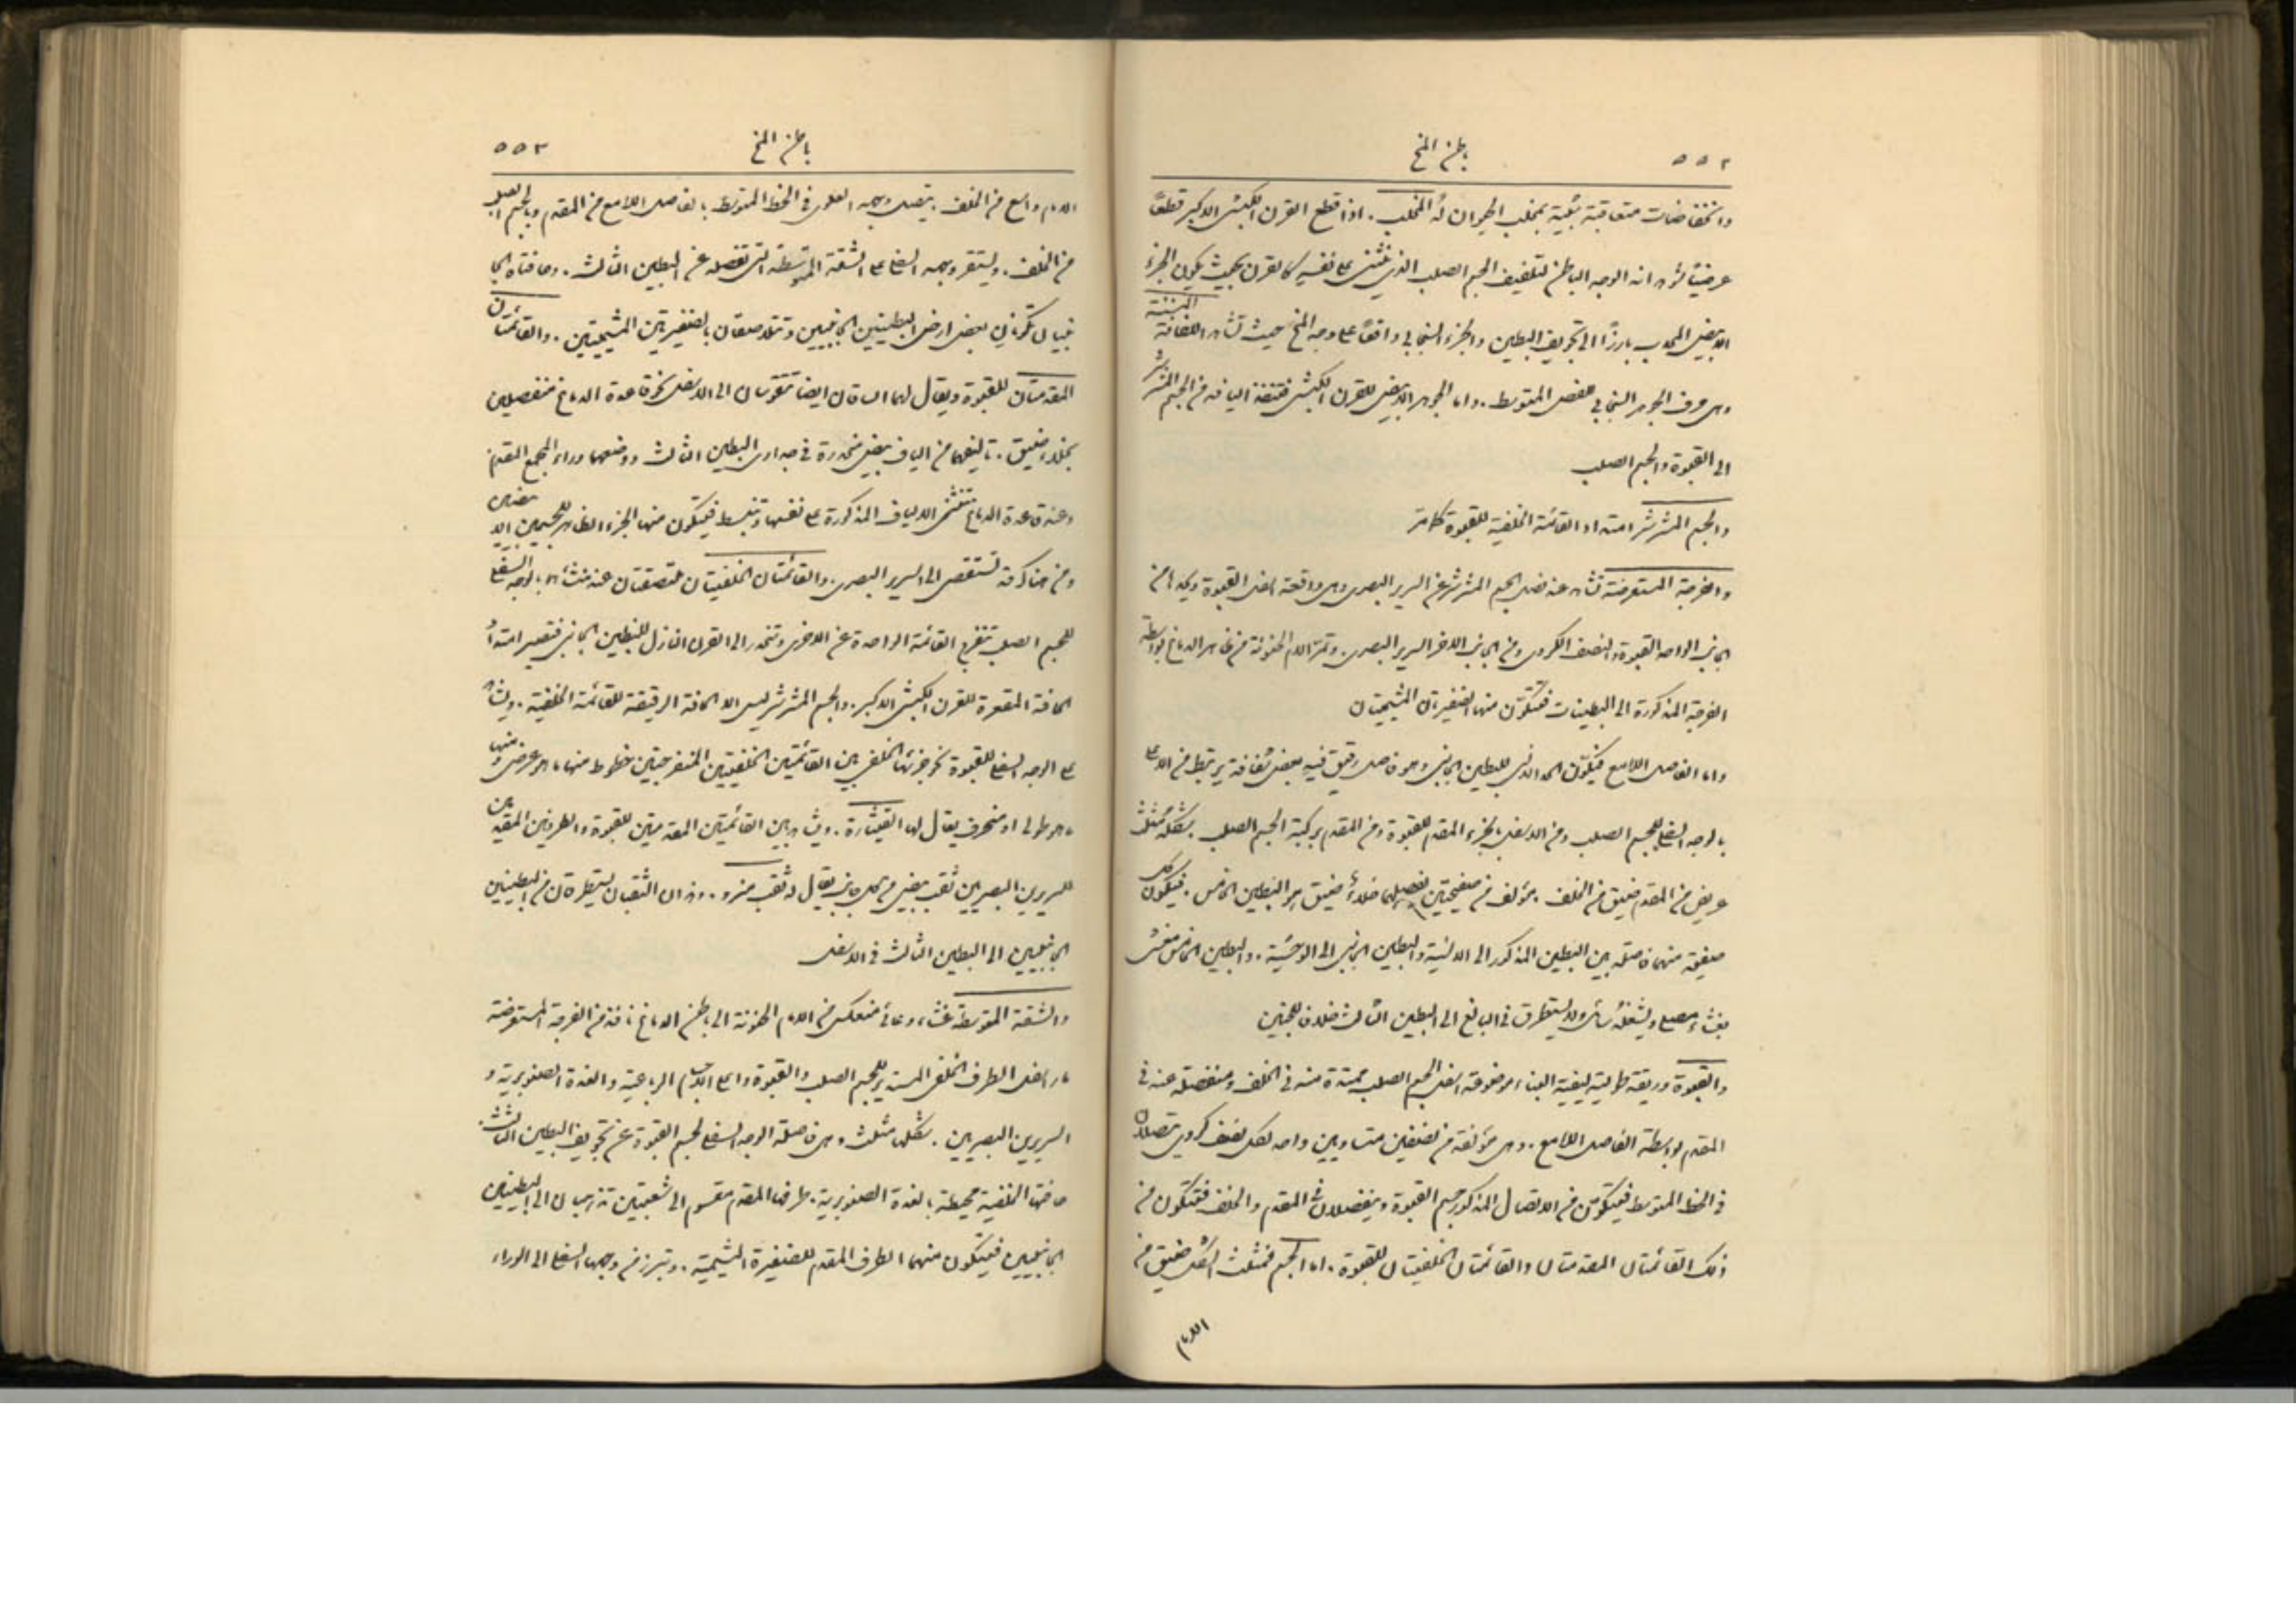 ٥٥٢
باطن المخ
وانخفاضات متعاقبة شبيهة بمخلب الحيوان لهُ المخلب. اذا قطع القرن الكبشي الاكبر قطعًا
عرضيًا نرى انه الوجه الباطن لتلفيف الجسم الصلب الذي ينثني على نفسه كالقرن بحيث يكون الجزء
الابيض المحدب بارزًا الى تجويف البطين والجزء السنجابي واقعًا على وجه المخ حيث تشاهد اللفافة المسننة
وهي حرف الجوهر السنجابي للفص المتوسط. واما الجوهر الابيض للقرن الكبشي فتنفذ اليافه في الجسم المشرشر
الى القبوة والجسم الصلب
والجسم المشرشر امتداد القائمة الخلفية للقبوة كما مر
والفرجة المستعرضة تشاهد عند فصل الجسم المشرشر عن السرير البصري وهي واقعة اسفل القبوة ويحدها من
الجانب الواحد القبوة والنصف الكروي ومن الجانب الاخر السرير البصري. وتمر الام الحنونة من ظاهر الدماغ بواسطة
الفرجة المذكورة الى البطينات فتتكون منها الضفيرتان المشيميتان
واما الفاصل اللامع فيكوّن الحد الانسي للبطين الجانبي وهو فاصل رقيق فيه بعض شفافة يرتبط من الاعلى
بالوجه السفلي للجسم الصلب ومن الاسفل بالجزء المقدم للقبوة ومن المقدم بركبة الجسم الصلب. شكله مثلث
عريض من المقدم ضيق من الخلف. مؤلف من صفيحتين يفصلهما خلاء ضيق هو البطين الخامس. فتكون كل
صفيحة منهما فاصلة بين البطين المذكور الى الانسية والبطين الجانبي الى الوحشية. والبطين الخامس مغشى
بغشاء مصلي ويشغله سائل ولا يستطرق في البالغ الى البطين الثالث خلافًا للجنين
والقبوة وريقة طولية ليفية البناء موضوعة اسفل الجسم الصلب ممتدة منه في الخلف ومنفصلة عنه في
المقدم بواسطة الفاصل اللامع. وهي مؤلفة من نصفين متساويين واحد لكل نصف كروي يتصلان
في الخط المتوسط فيتكون من الاتصال المذكور جسم القبوة وينفصلان في المقدم والخلف فتتكون من
ذلك القائمتان المقدمتان والقائمتان الخلفيتان للقبوة. اما الجسم فمثلث الشكل ضيق من
الامام
باطن المخ
٥٥٣
الامام واسع من الخلف. يتصل وجهه العلوي في الخط المتوسط بالفاصل اللامع من المقدم وبالجسم الصلب
من الخلف. ويستقر وجهه السفلي على الشقة المتوسطة التي تفصله عن البطين الثالث. وحافتاه الجا
نبيتان تكونان بعض ارض البطينين الجانبيين وتتلاصقان بالضفيرتين المشيميتين. والقائمتان
المقدمتان للقبوة ويقال لهما الساقان ايضًا تتقوسان الى الاسفل نحو قاعدة الدماغ منفصلين
بخلاء ضيق. تاليفهما من الياف بيض منحدرة في جداري البطين الثالث ووضعهما وراء المجمع المقدم
وعند قاعدة الدماغ تنثني الالياف المذكورة على نفسها وتنبسط فيتكون منها الجزء الظاهر للجسمين الابيضين
ومن هناك قد تستقصى الى السرير البصري. والقائمتان الخلفيتان ملتصقتان عند منشأهما بالوجه السفلي
للجسم الصلب ثم تنفرج القائمة الواحدة عن الاخرى وتنحدر الى القرن النازل للبطين الجانبي فتصير امتدادًا
الحافة المقعرة للقرن الكبشي الاكبر. والجسم المشرشر ليس الا الحافة الرقيقة للقائمة الخلفية. ويشاهد
على الوجه السفلي للقبوة نحو جزئها الخلفي بين القائمتين الخلفيتين المنفرجتين خطوط منها ما هو عرضي ومنها
ما هو طولي او منحرف يقال لها القيثارة. ويشاهد بين القائمتين المقدمتين للقبوة والطرفين المقدمين
للسريرين البصريين ثقب بيضي من كل جانب يقال له ثقب منرو. وهذان الثقبان يستطرقان من البطينين
الجانبيين الى البطين الثالث في الاسفل
والشقة المتوسطة غشاء وعائي منعكس من الام الحنونة الى باطن الدماغ نافذ من الفرجة المستعرضة
مار اسفل الطرف الخلفي المستدير للجسم الصلب والقبوة واعلى الاجسام الرباعية والغدة الصنوبرية و
السريرين البصريين. شكلها مثلث وهي فاصلة الوجه السفلي لجسم القبوة عن تجويف البطين الثالث.
حافتها الخلفية محيطة بالغدة الصنوبرية. طرفها المقدم مقسوم الى شعبتين تذهبان الى البطينين
الجانبيين فيتكون منهما الطرف المقدم للضفيرة المشيمية. ويبرز من وجهها السفلي الى الوراء